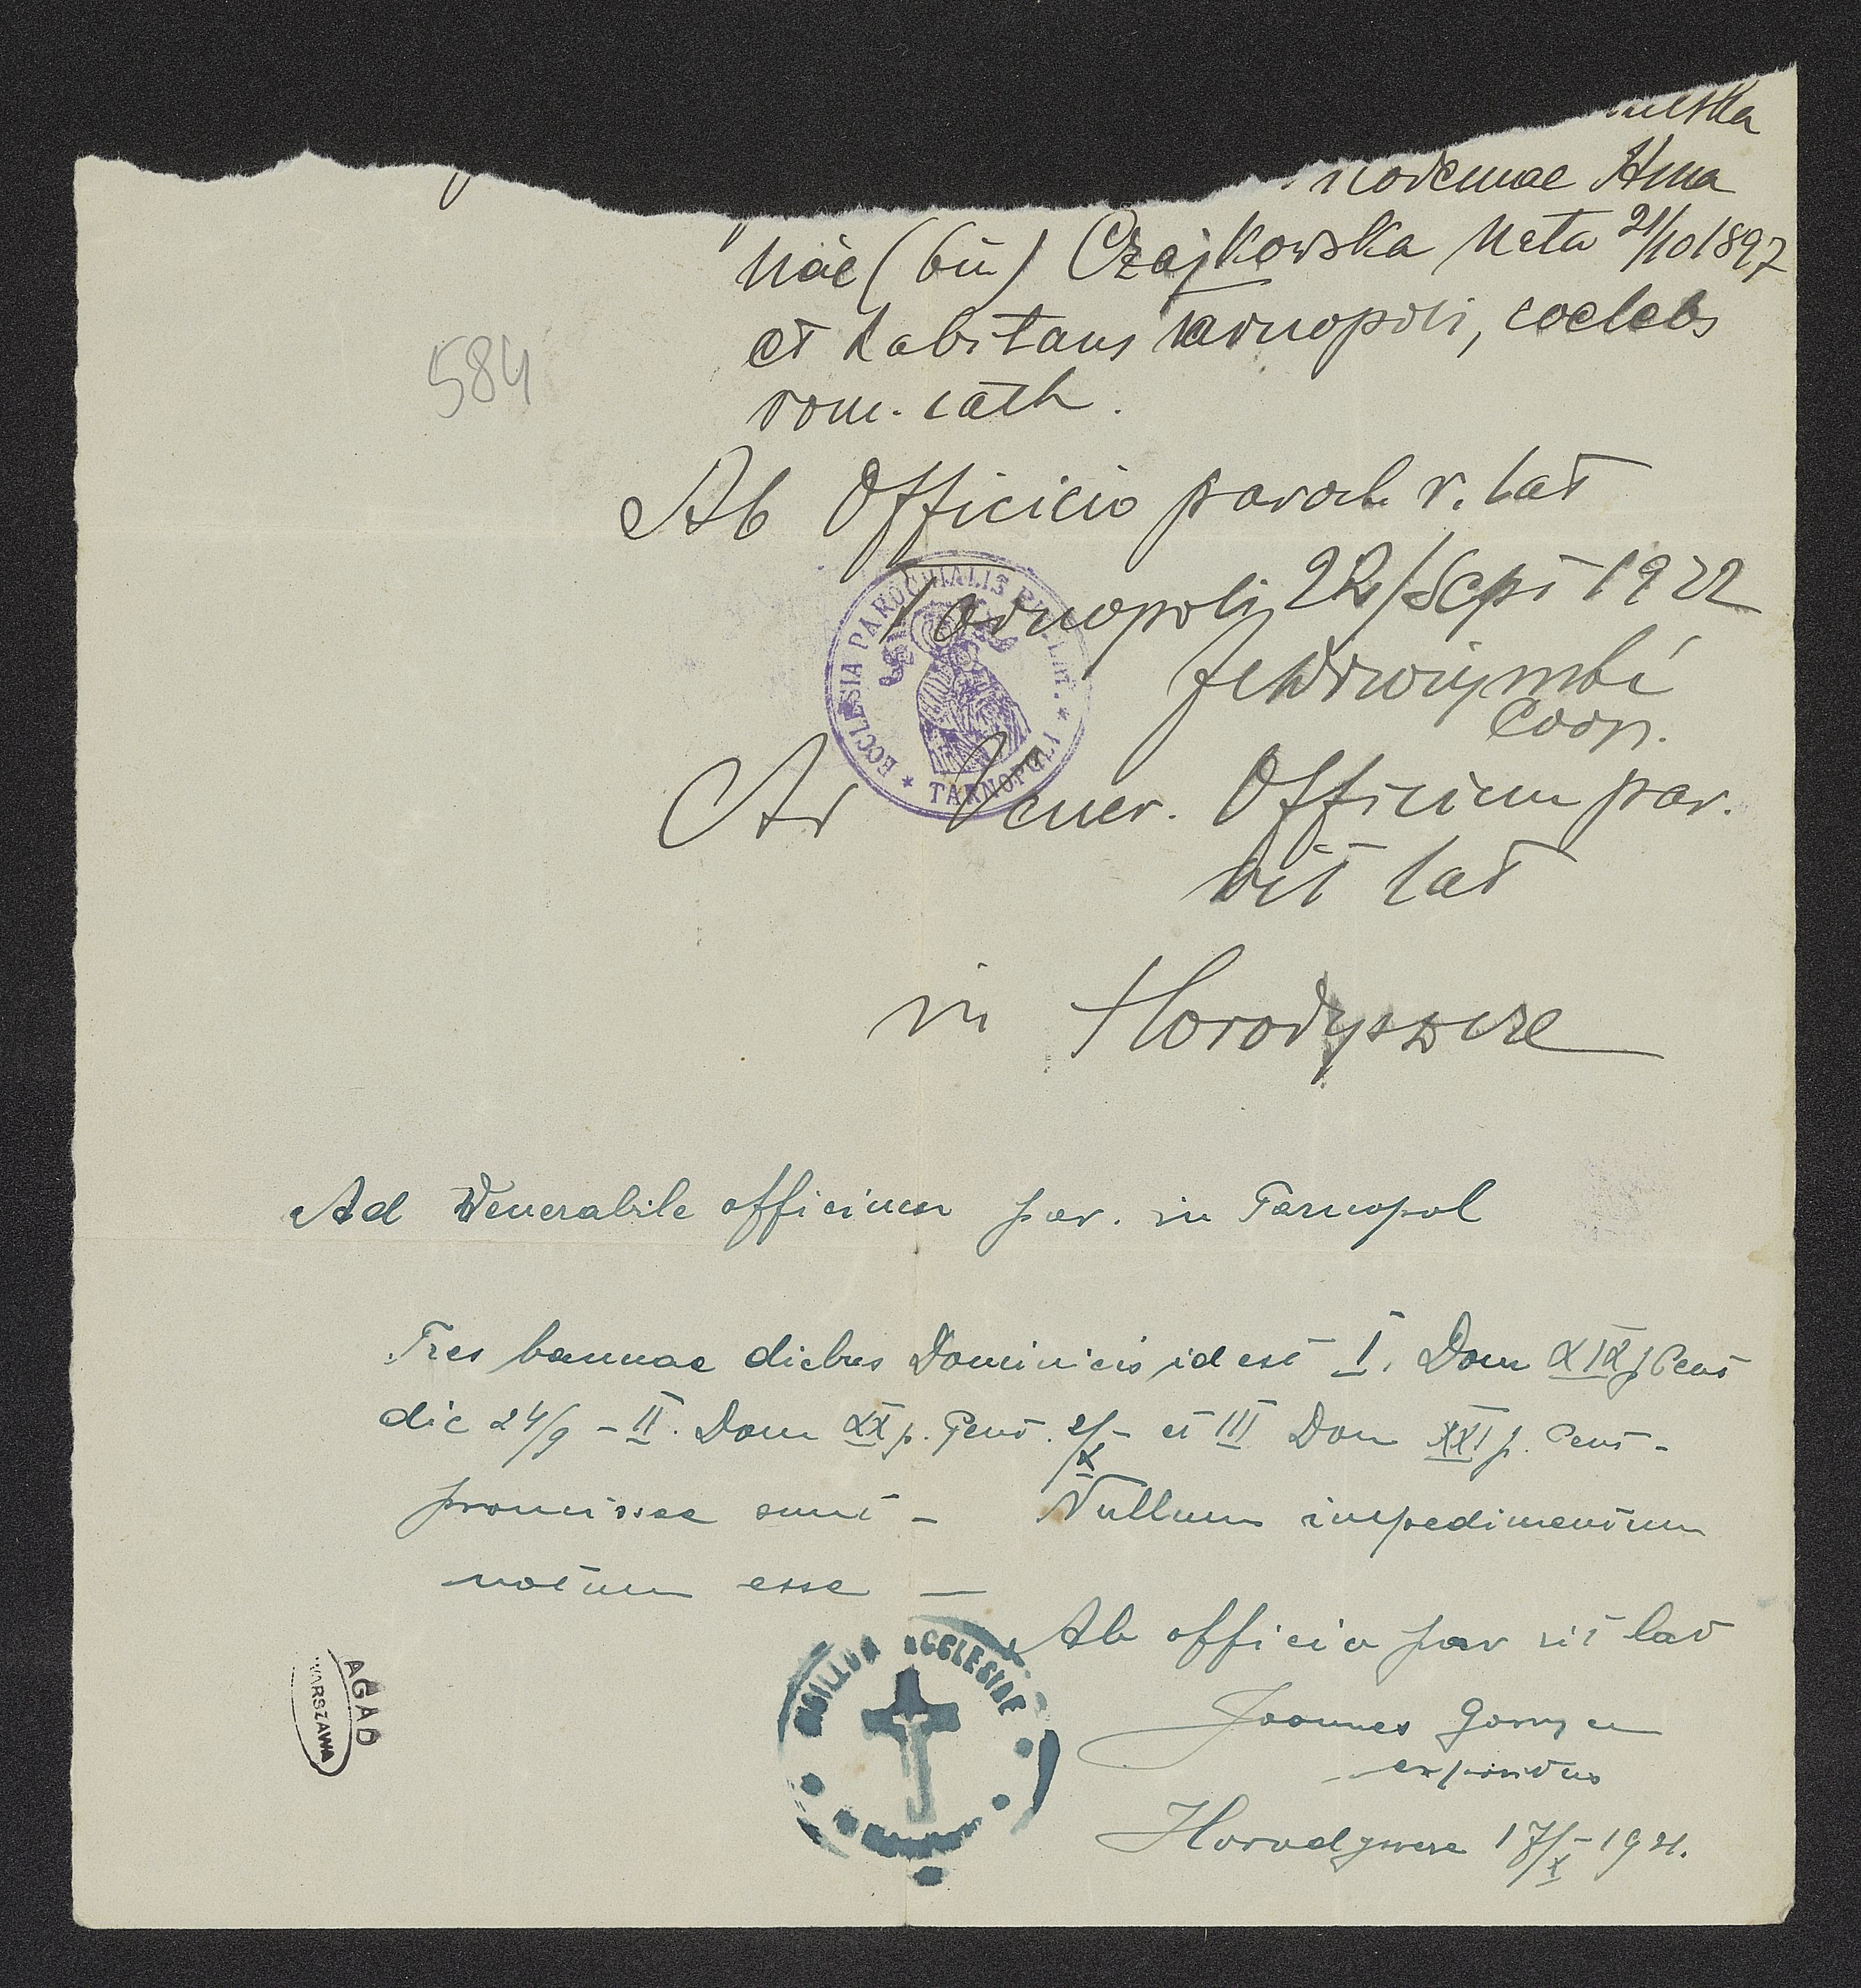 Czajkowska nata 21/10 1897
et habitans Tarnopoli, coelebs
rom. cath.
584
Ab Officicio paroch r. lat
Tarnopoli 22/Sept 1922
Coop.
ECCLESIA PAROCHIALIS R. LAT. * TARNOPOLI *
Ad Vener. Officium par.
rit lat
in Horodyszcze
Ad Venerabile officium par. in Tarnopol
Tres bannae diebus Dominicis id est I. Dom XIX p Pent
die 24/9 – II. Dom XX p. Pent. 1/X – et III Dom XXI p. Pent –
promissae sunt – Nullum impedimentum
notum esse —
Ab officio par rit lat
SIGILLUM ECCLESIAE
Joannes
expositus
Horodyszcze 17/X – 192
AGAD
WARSZAWA